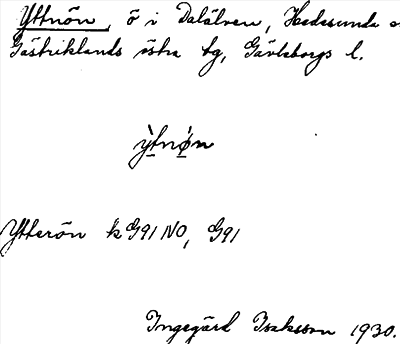 Yttnön, ö i Dalälven, Hedesunda s
Gästriklands östra tg, Gävleborgs l.
ỳtnø̀n
Ytterön k G91 NO, G91
Ingegärd Isaksson 1930.